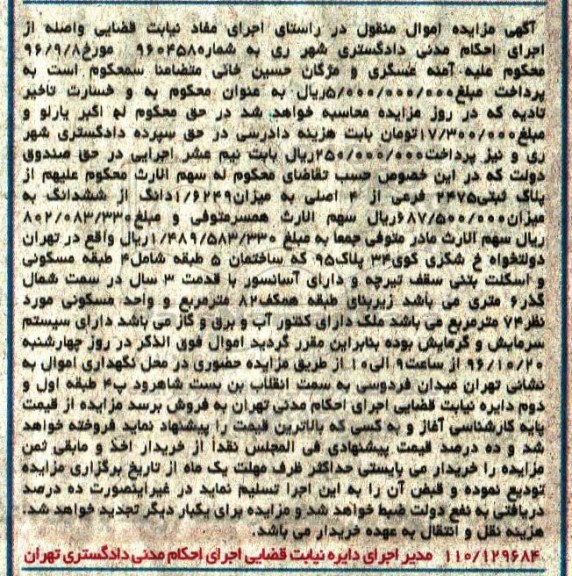 آگهی مزایده اموال منقول در راستای اجرای مفاد نیابت قضایی واصله از
اجرای احکام مدنی دادگستری شهر ری به شماره۹۶۰۴۵۸۰ مورخ۹۶/۹/۸
محکوم علیه آمنه عسگری و مژگان حسین خانی متضامنا سمحکوم است به
پرداخت مبلغ۵/۰۰۰/۰۰۰/۰۰۰ریال به عنوان محکوم به و خسارت تاخیر
تادیه که در روز مزایده محاسبه خواهد شد در حق محکوم له اکبر یارلو و
مبلغ۱۷/۳۰۰/۰۰۰تومان بابت هزینه دادرسی در حق سپرده دادگستری شهر
ری و نیز پرداخت۲۵۰/۰۰۰/۰۰۰ریال بابت نیم عشر اجرایی در حق صندوق
دولت که در این خصوص حسب تقاضای محکوم له سهم الارث محکوم علیهم از
پلاک ثبتی۲۴۷۵ فرعی از ۲ اصلی به میزان۱/۶۲۴۹دانگ از ششدانگ به
میزان۶۸۷/۵۰۰/۰۰۰ریال سهم الارث همسرمتوفی و مبلغ۸۰۲/۰۸۳/۳۳۰
ریال سهم الارث مادر متوفی جمعا به مبلغ ۱/۴۸۹/۵۸۳/۳۳۰ریال واقع در تهران
دولتخواه خ شکری کوی۳۴ پلاک۹۵ که ساختمان ۵ طبقه شامل۴ طبقه مسکونی
و اسکلت بتنی سقف تیرچه و دارای آسانسور با قدمت ۳ سال در سمت شمال
گذر۶ متری می باشد زیربنای طبقه همکف۸۲ مترمربع و واحد مسکونی مورد
نظر۷۴ مترمربع می باشد ملک دارای کنتور آب و برق و گاز می باشد دارای سیستم
سرمایش و گرمایش بوده بنابراین مقرر گردید اموال فوق الذکر در روز چهارشنبه
۹۶/۱۰/۲۰ از ساعت۹ الی۱۰ از طریق مزایده حضوری در محل نگهداری اموال به
نشانی تهران میدان فردوسی به سمت انقلاب بن بست شاهرود پ۴ طبقه اول و
دوم دایره نیابت قضایی اجرای احکام مدنی تهران به فروش برسد مزایده از قیمت
پایه کارشناسی آغاز و به کسی که بالاترین قیمت را پیشنهاد نماید فروخته خواهد
شد و ده درصد قیمت پیشنهادی فی المجلس نقداً از خریدار اخذ و مابقی ثمن
مزایده را خریدار می بایستی حداکثر ظرف مهلت یک ماه از تاریخ برگزاری مزایده
تودیع نموده و قبض آن را به این اجرا تسلیم نماید در غیراینصورت ده درصد
دریافتی به نفع دولت ضبط خواهد شد و مزایده برای یکبار دیگر تجدید خواهد شد.
هزینه نقل و انتقال به عهده خریدار می باشد.
۱۱۰/۱۲۹۶۸۴ مدیر اجرای دایره نیابت قضایی اجرای احکام مدنی دادگستری تهران